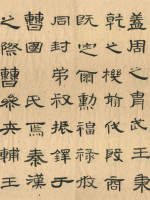 蓋周之胄武王秉
乾之機翦伐殷商
既定爾勳福祿攸
同封弟叔振鐸于
曹國氏焉秦漢
之際曹參夾輔王